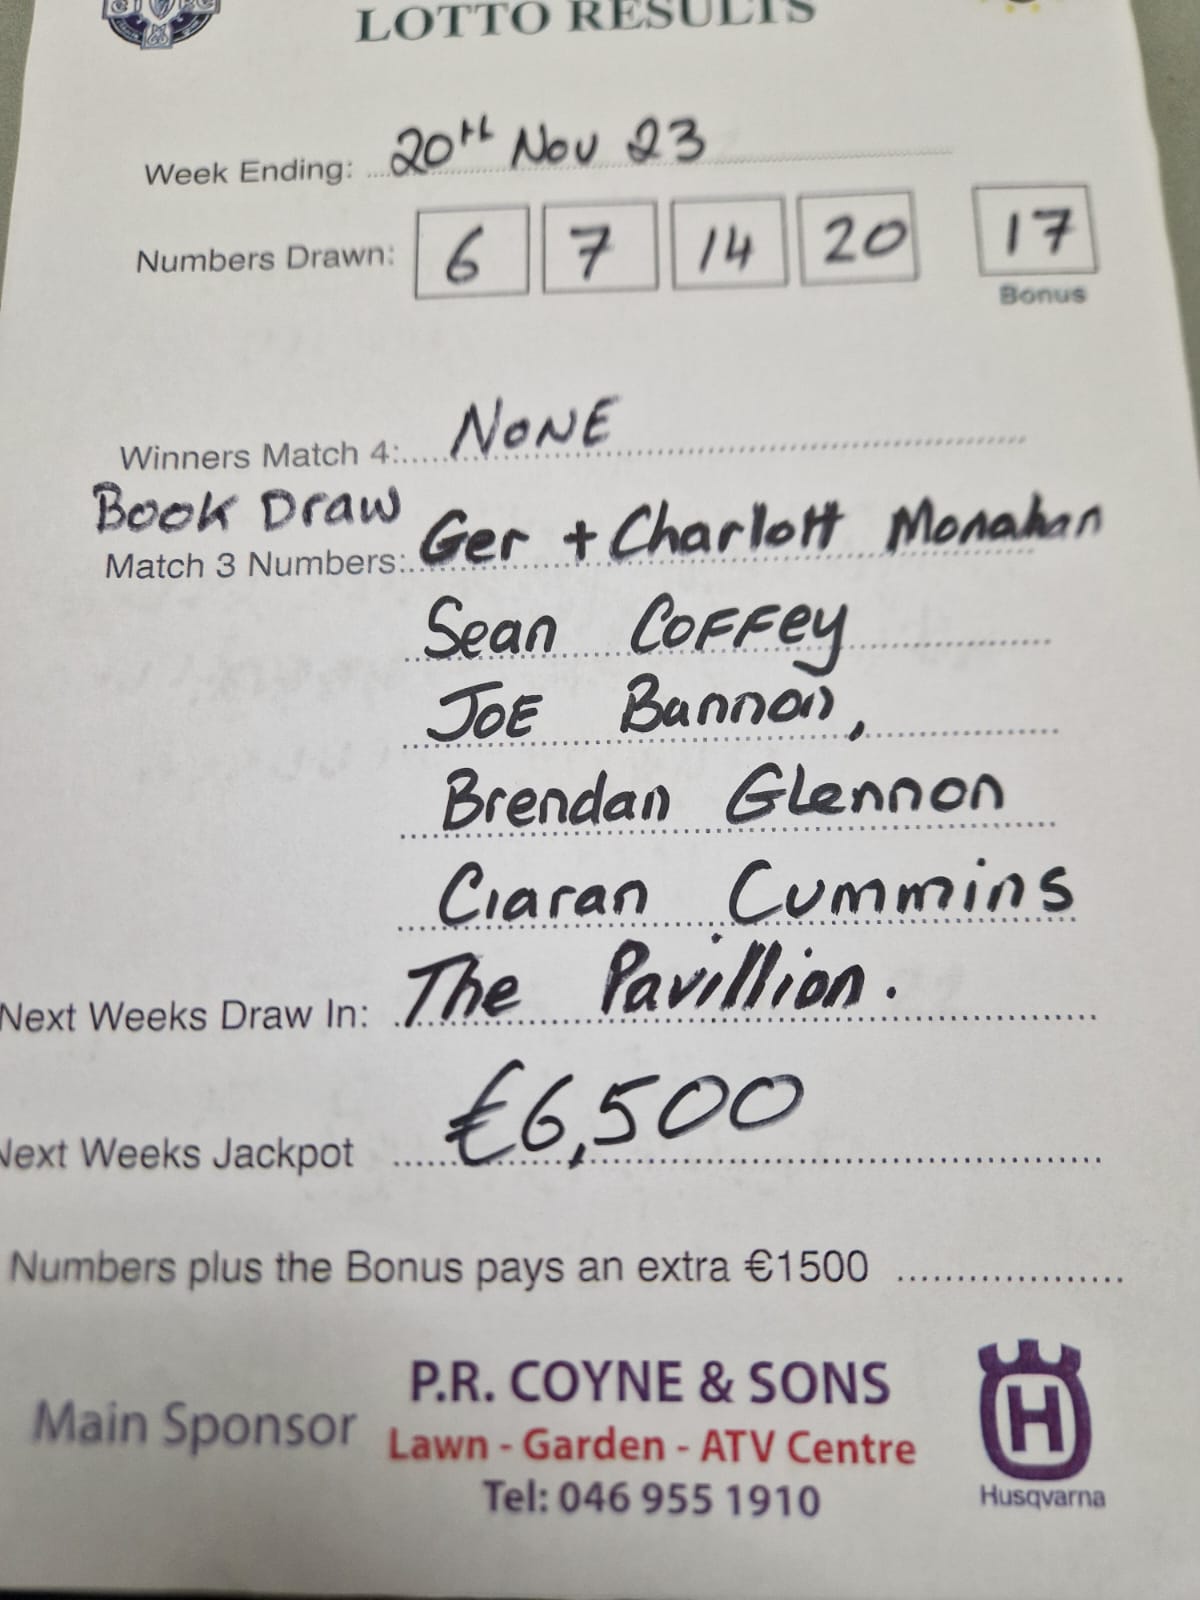 LOTTO RESULTS
Week Ending: 20th Nov 23
Numbers Drawn: 6 7 14 20 17
Bonus
Winners Match 4: NONE
Book Draw
Match 3 Numbers: Ger + Charlott Monahan
Sean Coffey
JOE Bannon,
Brendan Glennon
Ciaran Cummins
Next Weeks Draw In: The Pavillion.
Next Weeks Jackpot €6,500
Numbers plus the Bonus pays an extra €1500
Main Sponsor P.R. COYNE & SONS
Lawn - Garden - ATV Centre
Tel: 046 955 1910
H
Husqvarna